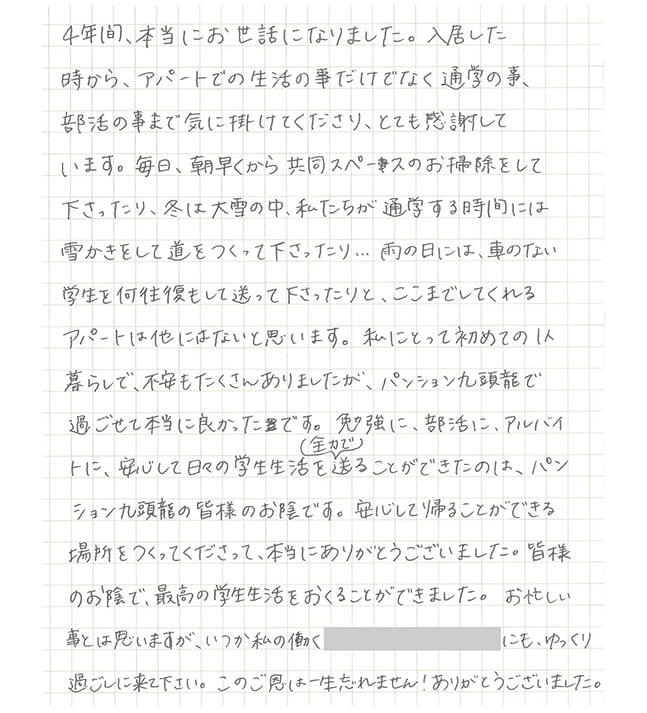 4年間、本当にお世話になりました。入居した
時から、アパートでの生活の事だけでなく通学の事、
部活の事まで気に掛けてくださり、とても感謝して
います。毎日、朝早くから共同スペースのお掃除をして
下さったり、冬は大雪の中、私たちが通学する時間には
雪かきをして道をつくって下さったり… 雨の日には、車のない
学生を何往復もして送って下さったりと、ここまでしてくれる
アパートは他にはないと思います。私にとって初めての1人
暮らしで、不安もたくさんありましたが、パンション九頭龍で
過ごせて本当に良かったです。勉強に、部活に、アルバイ
(全力で)
トに、安心して日々の学生生活を送ることができたのは、パン
ション九頭龍の皆様のお陰です。安心して帰ることができる
場所をつくってくださって、本当にありがとうございました。皆様
のお陰で、最高の学生生活をおくることができました。お忙しい
事とは思いますが、いつか私の働く にも、ゆっくり
過ごしに来て下さい。このご恩は一生忘れません!ありがとうございました。